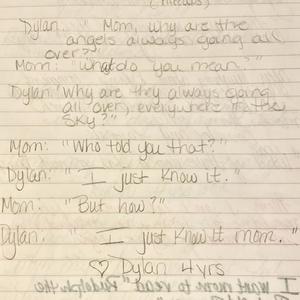 Dylan: "Mom, why are the
angels always going all
over?"
Mom: "What do you mean?"
Dylan: "Why are they always going
all over, everywhere in the
sky?"
Mom: "Who told you that?"
Dylan: "I just know it."
Mom: "But how?"
Dylan: "I just know it mom."
♡ Dylan 4yrs